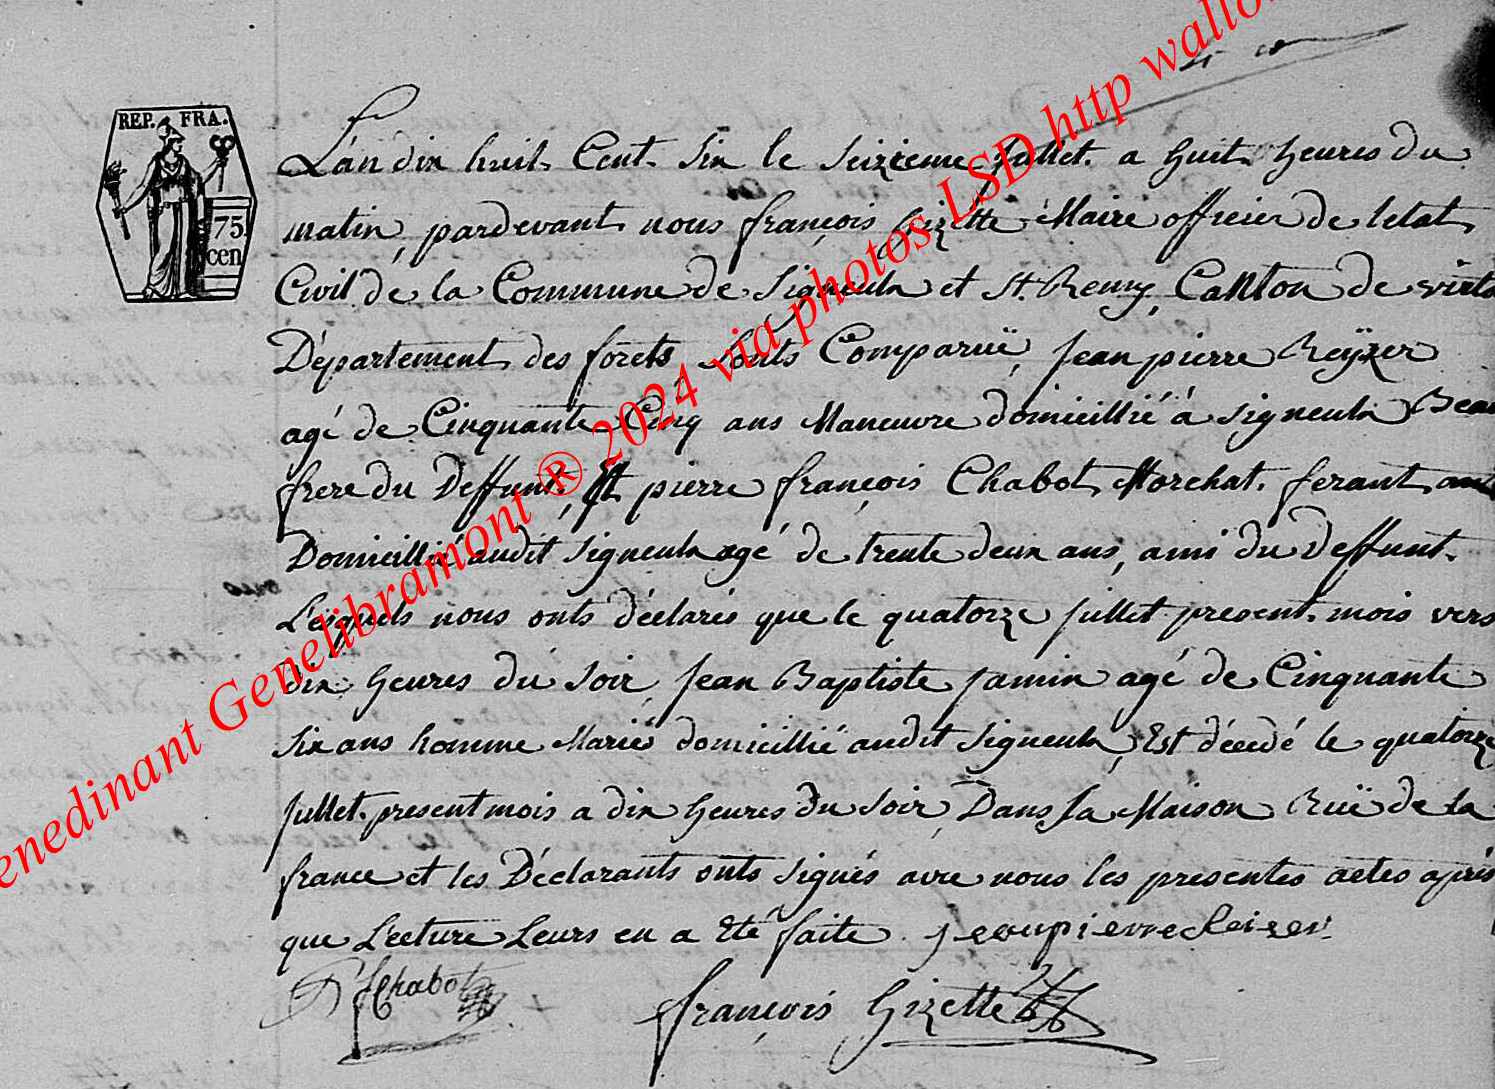 REP. FRA.
75
cen
L'an dix huit Cent Six le Seizieme Jullet a huit heures du
matin, pardevant nous françois Gizette Maire officier de letat
Civil de la Commune de Signeulx et St. Remy Canton de virto
Département des forets Sonts Comparuë, Jean pierre Reÿzer
agé de Cinquante Cinq ans Maneuvre domicillié à Signeulx Beau
frere du Deffunt, Et pierre françois Chabot Morchat ferant
Domicillié audit Signeulx agé de trente deux ans, ami du Deffunt.
Lésquels nous onts déclarés que le quatorze Jullet present mois vers
dix heures du Soir, Jean Baptiste Jamin agé de Cinquante
Six ans homme Marié domicillié audit Signeulx, Est décédé le quatorze
Jullet present mois a dix heures du Soir, Dans Sa Maison Ruë de la
france et les Déclarants onts Signés avec nous les presentes actes aprés
que Lecture Leurs en a Eté faite. jeanpierre Reizer
P f Chabot
françois Gizette
enedinant Genelibramont ® 2024 via photos LSD http wallo